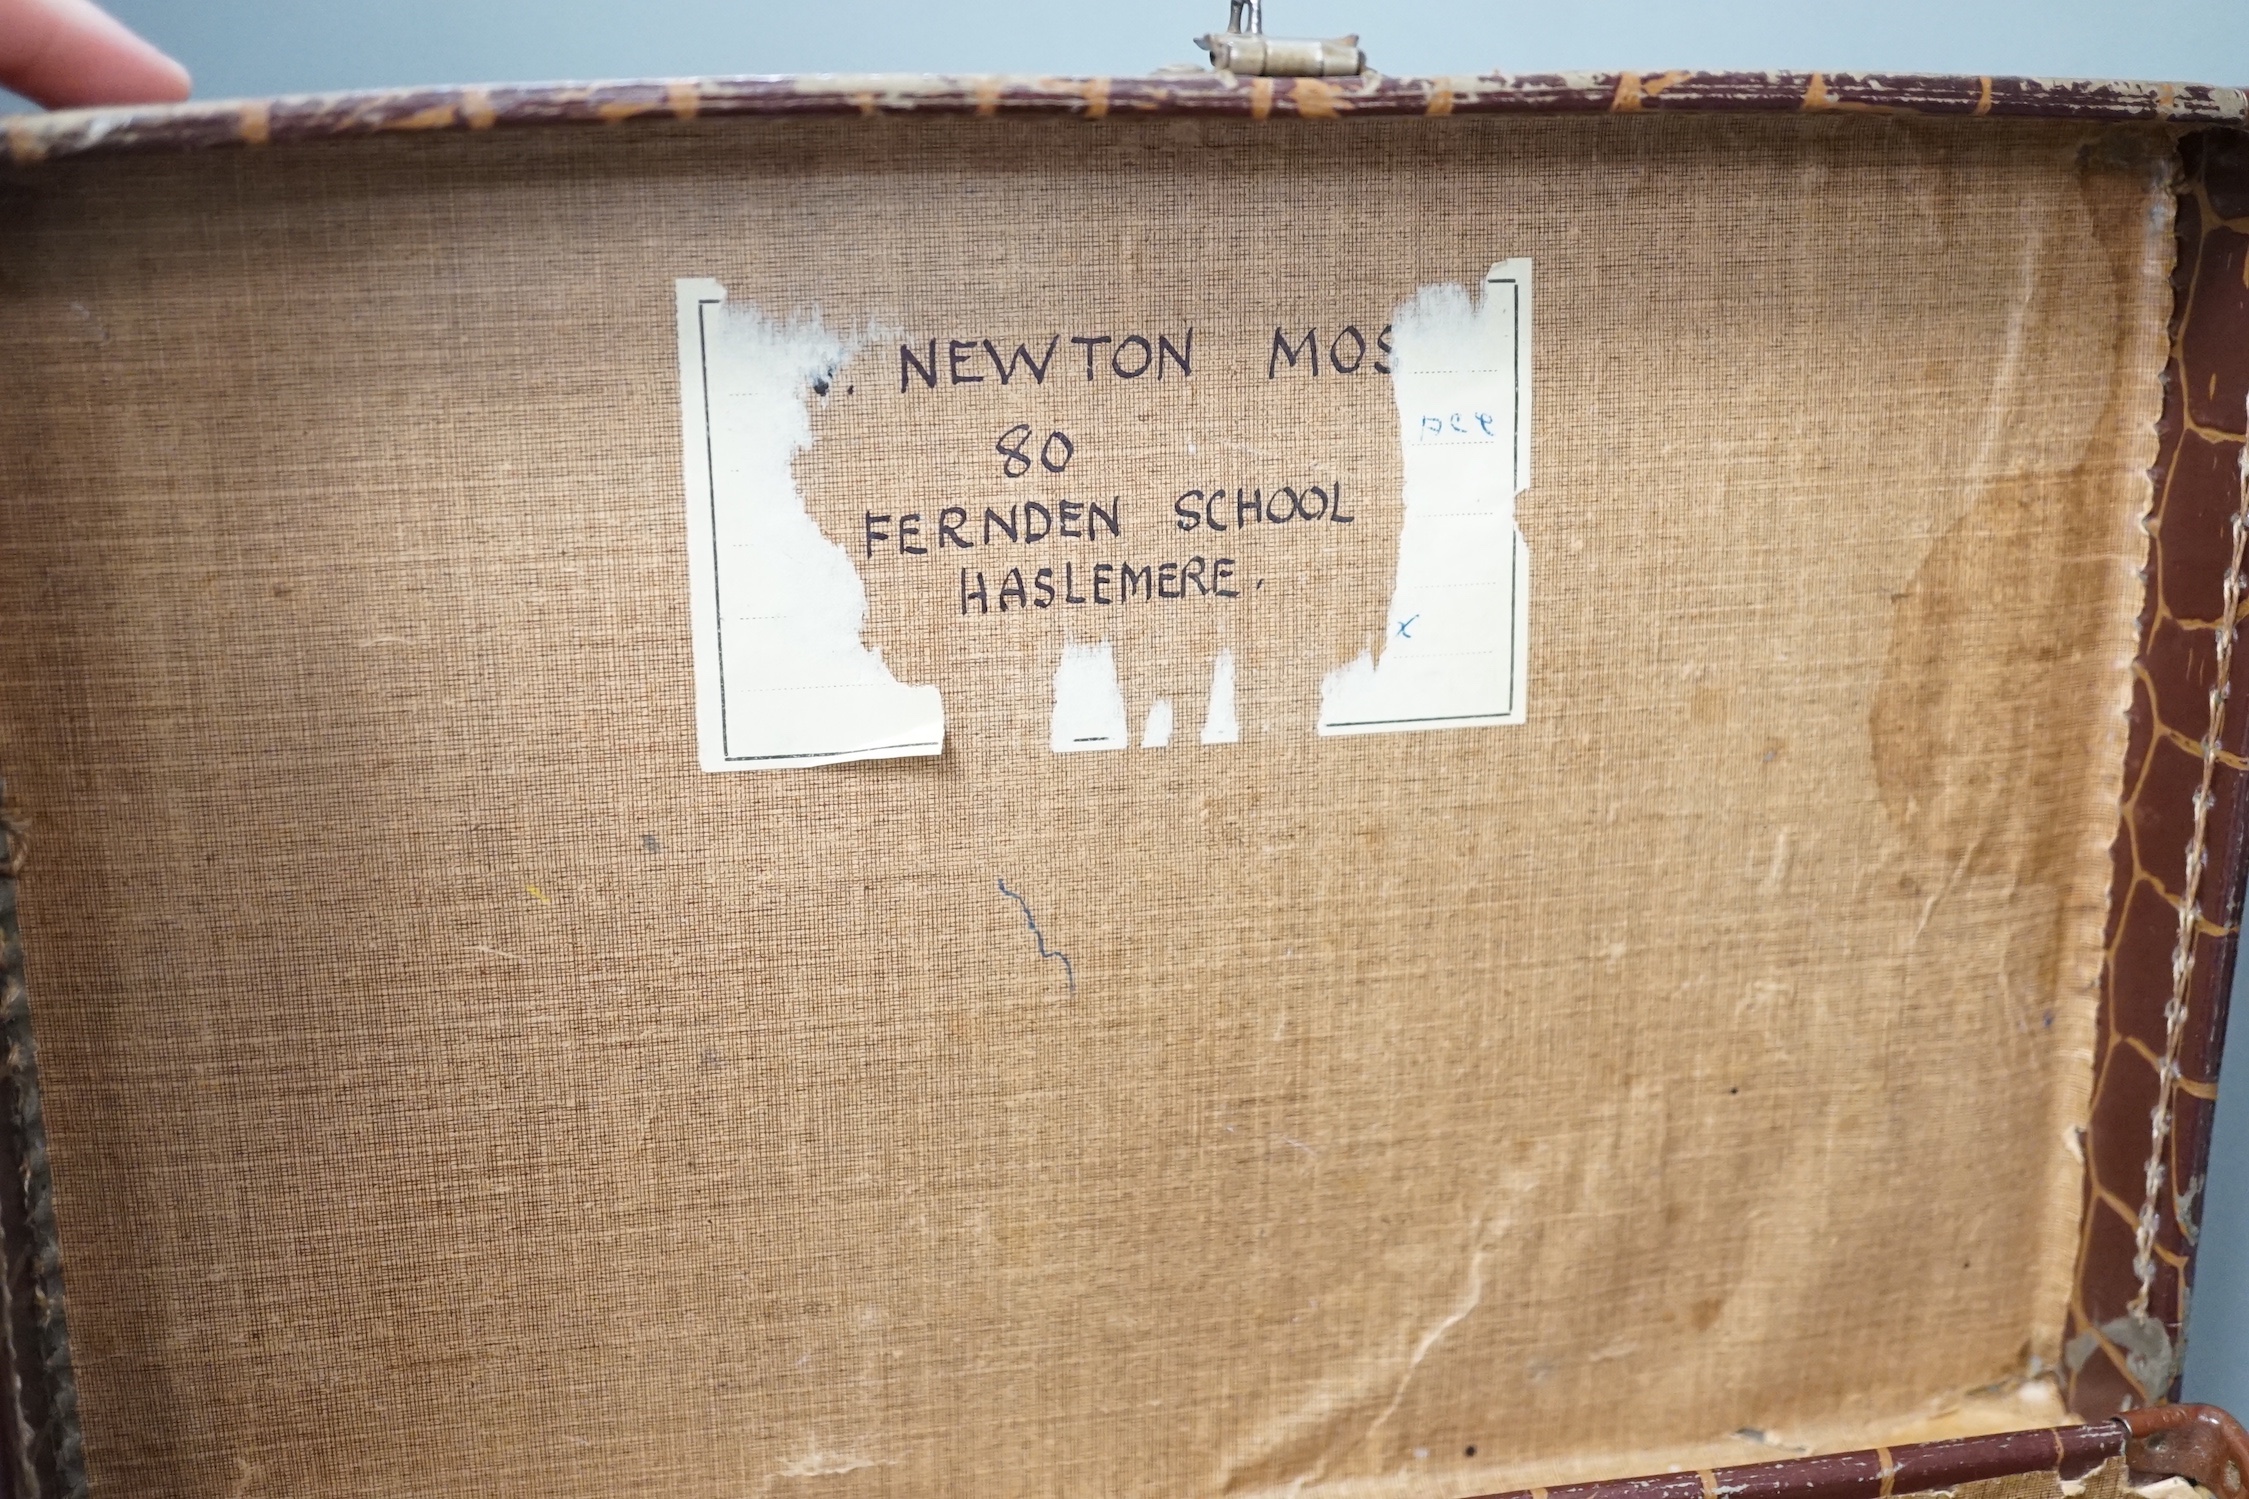 . NEWTON MOS
80
FERNDEN SCHOOL
HASLEMERE.
x